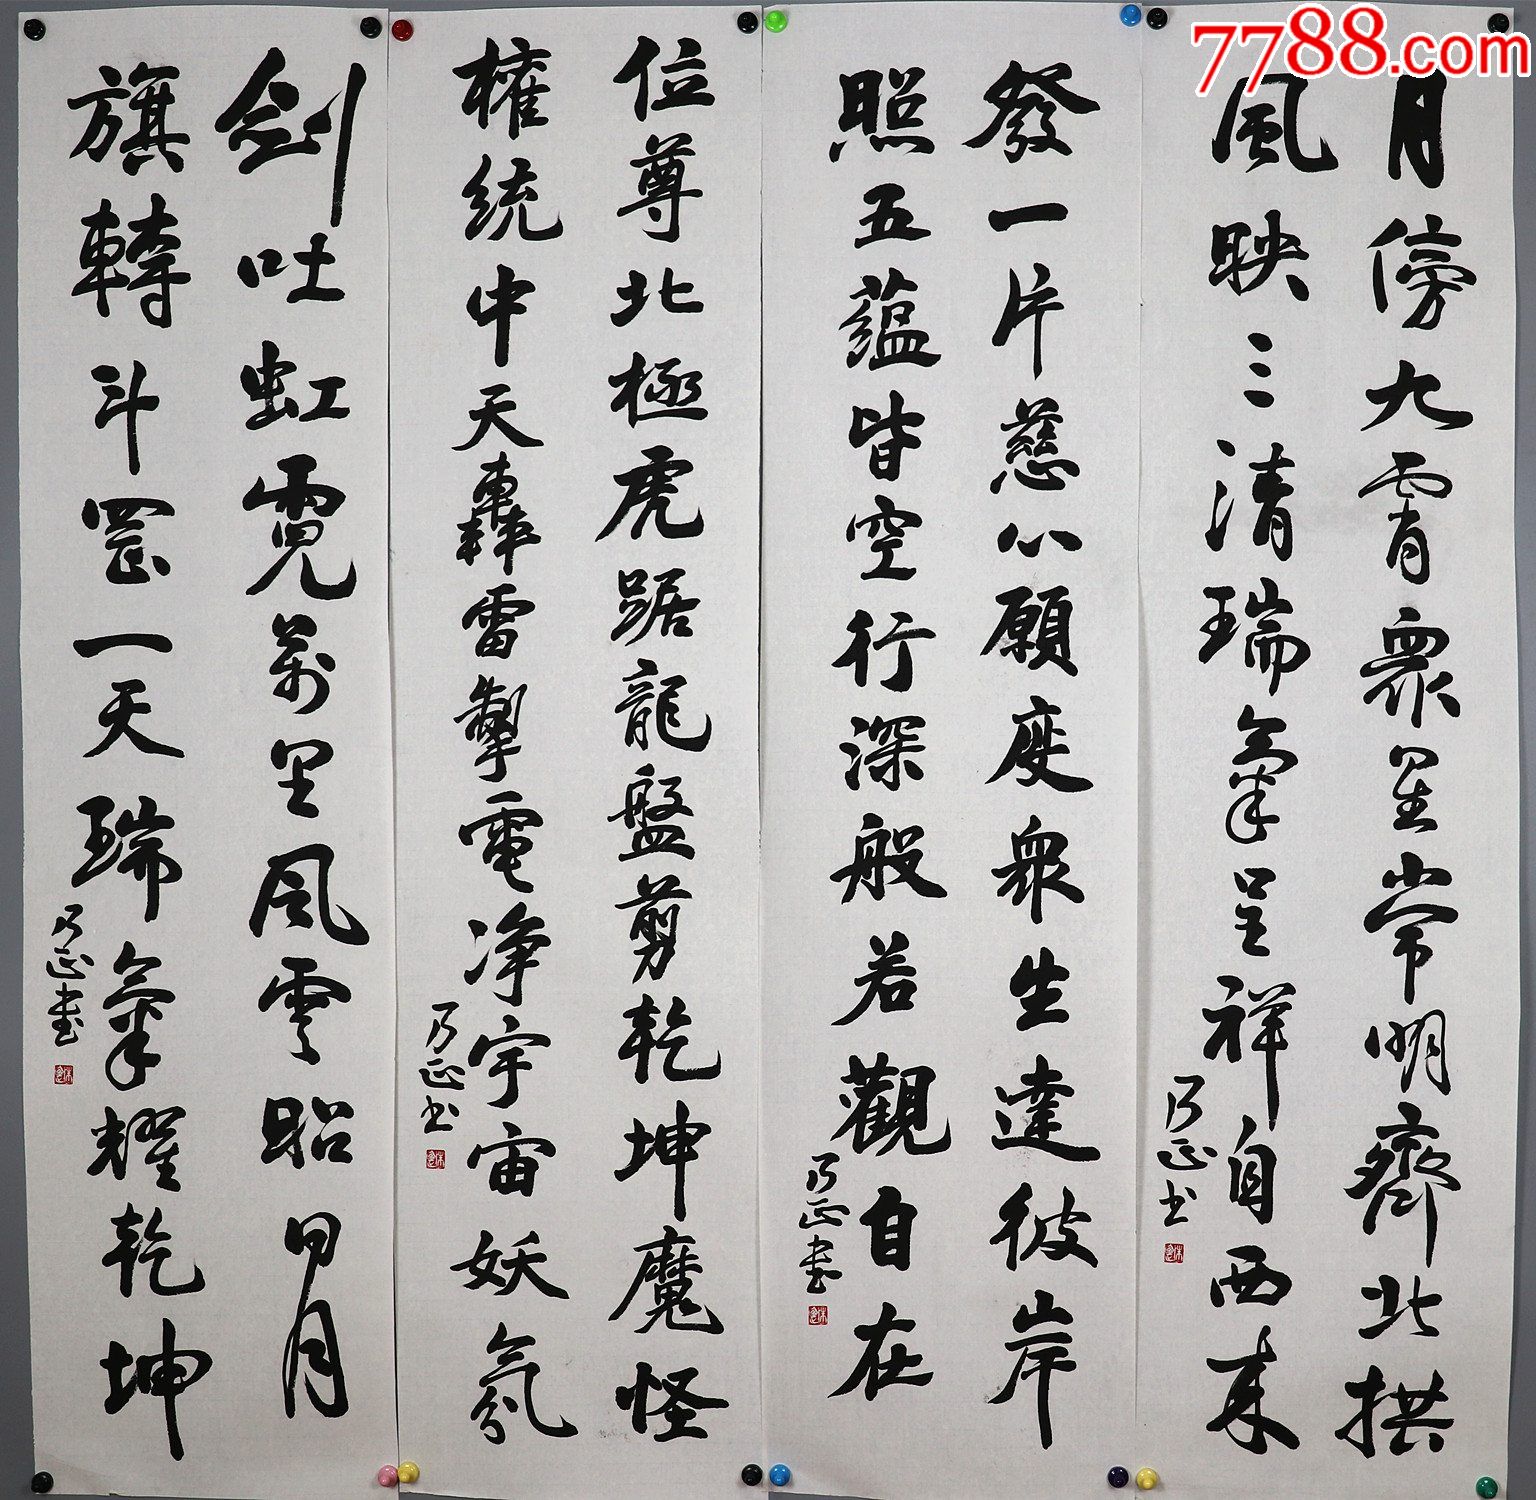 7788.com
月傍九霄衆星常明齊北拱
風映三清瑞氣呈祥自西来
乃正书
發一片慈心願度衆生達彼岸
照五蘊皆空行深般若觀自在
乃正書
位尊北極虎踞龍盤剪乾坤魔怪
權統中天轟雷掣電净宇宙妖氛
乃正书
劍吐虹霓萬里風雲昭日月
旗轉斗罡一天瑞氣耀乾坤
乃正書